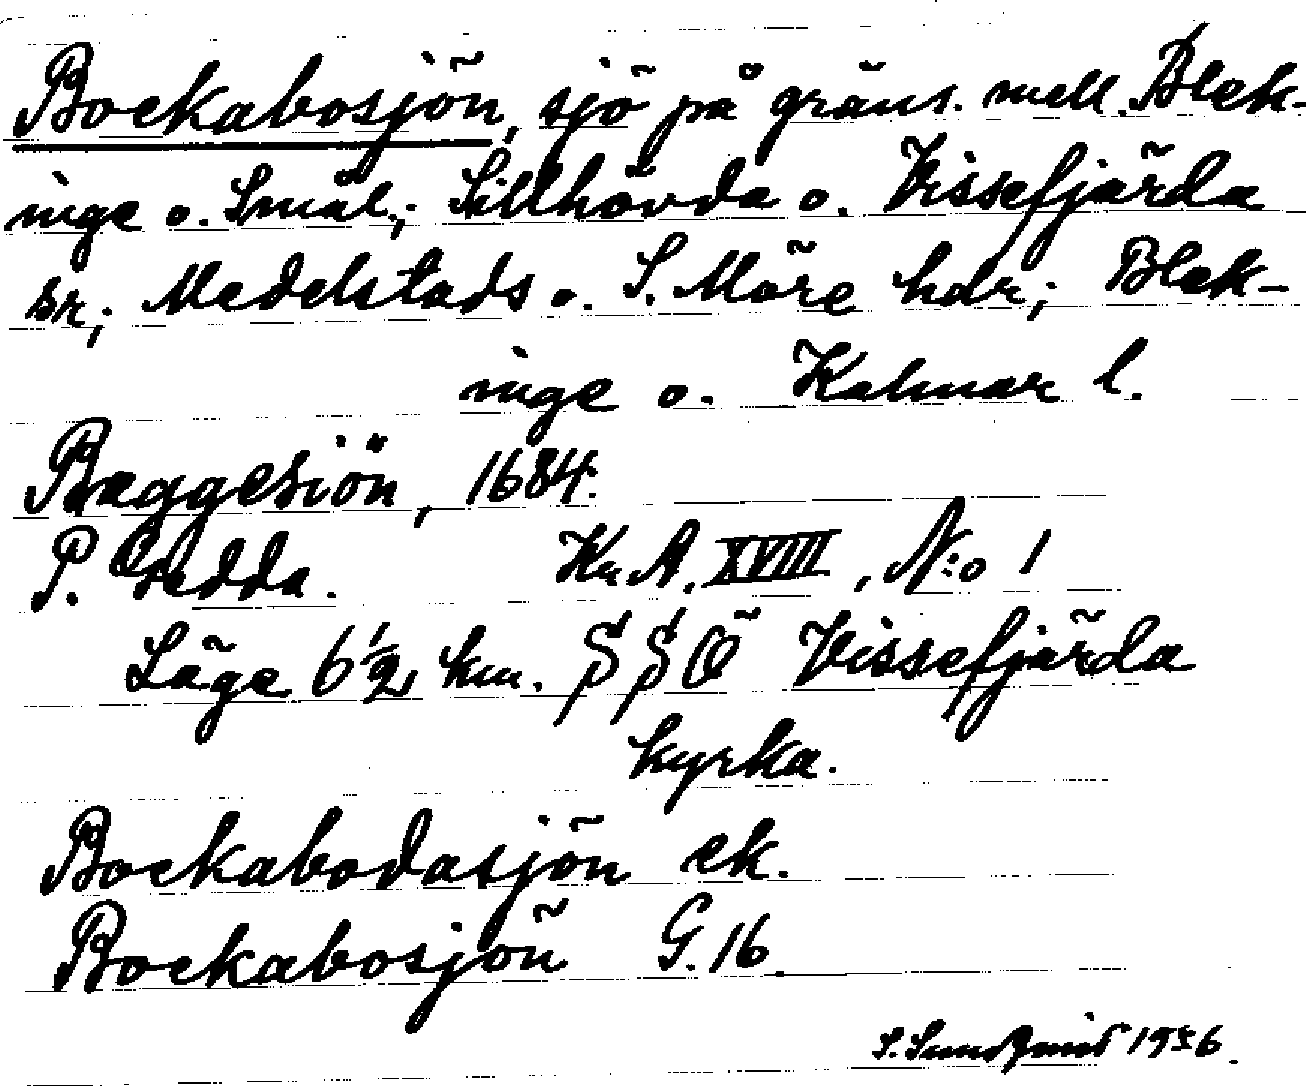 Bockabosjön, sjö på gräns. mell. Blek-
inge o. Smål.; Sillhövda o. Vissefjärda
sn; Medelstads o. S. Möre hdr; Blek-
inge o. Kalmar l.
Baggesiön, 1684.
P. Gedda. Kr. A. XVIII, N:o 1
Läge 6 1/2 km. SSÖ Vissefjärda
kyrka.
Bockabodasjön ek.
Bockabosjön G. 16.
S. Sundqvist 1956.